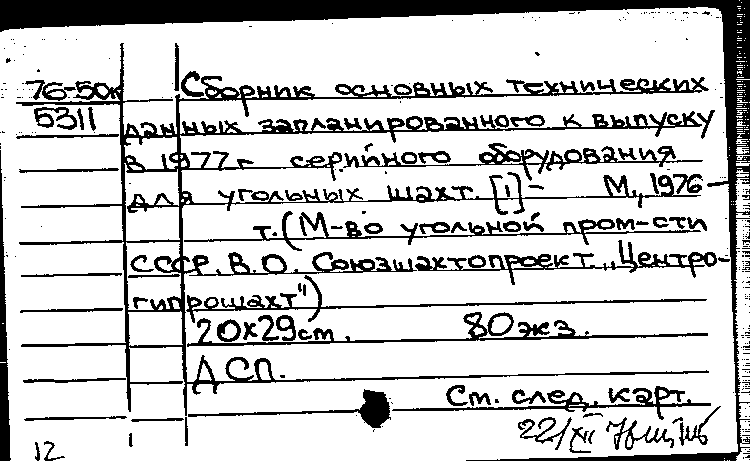 76-50к Сборник основных технических
5311 данных запланированного к выпуску
в 1977 г серийного оборудования
для угольных шахт. [1] - М., 1976 -
т. (М-во угольной пром-сти
СССР. В.О. Союзшахтопроект „Центро-
гипрошахт")
20х29 см. 80 экз.
ДСП.
Ст. след. карт.
22/XII
12